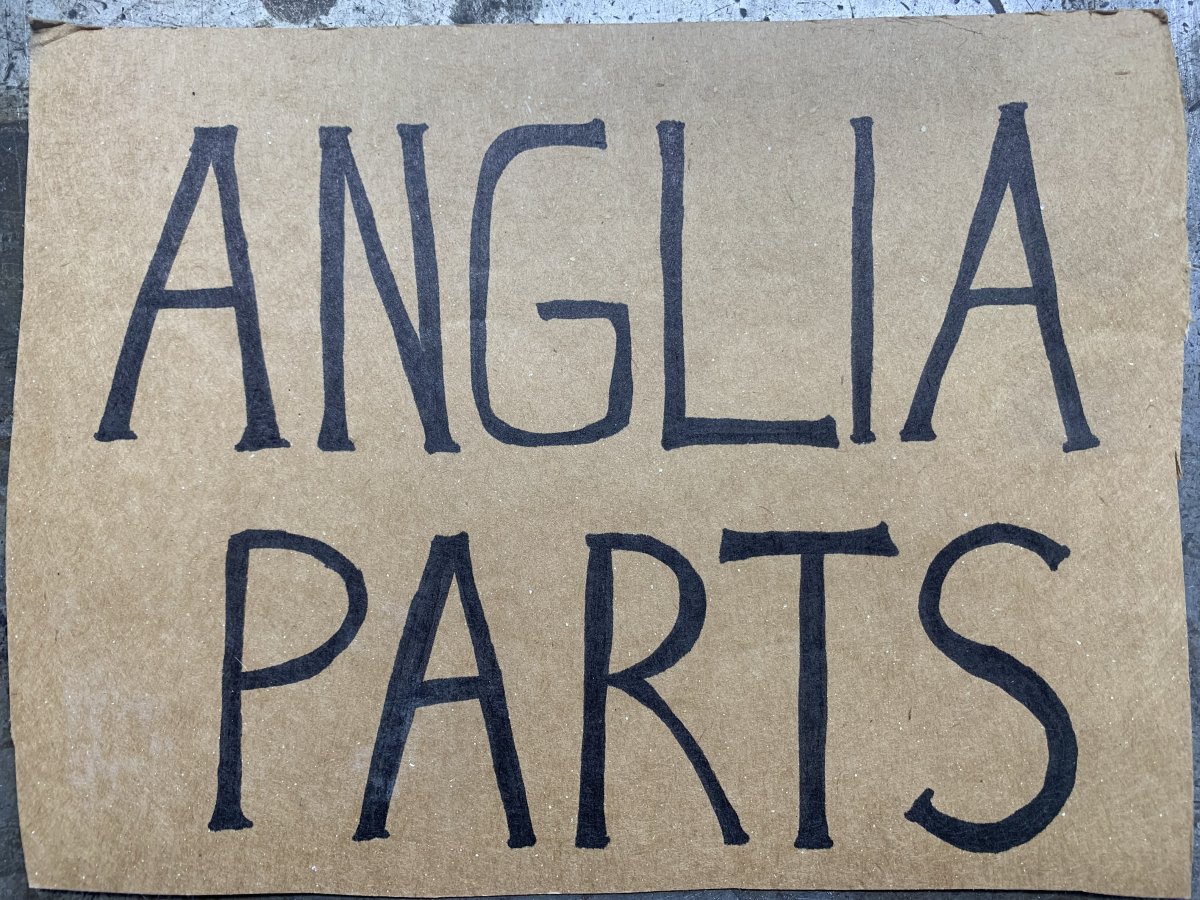 ANGLIA
PARTS